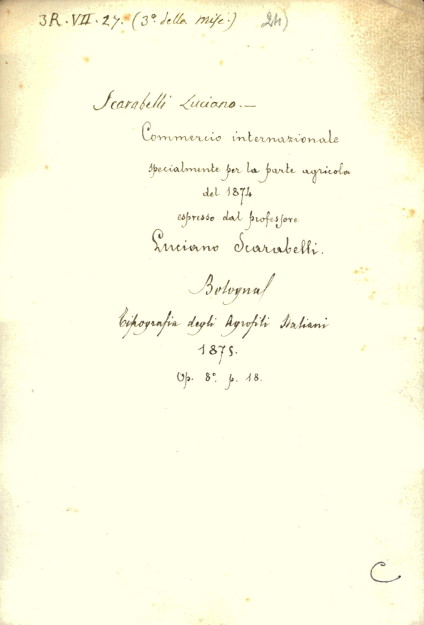 3R. VII. 27. (3º della misc.) 24)
Scarabelli Luciano. —
Commercio internazionale
specialmente per la parte agricola
del 1874
espresso dal professore
Luciano Scarabelli.
Bologna
Tipografia degli Agrofili Italiani
1875.
Op. 8º. p. 18.
C